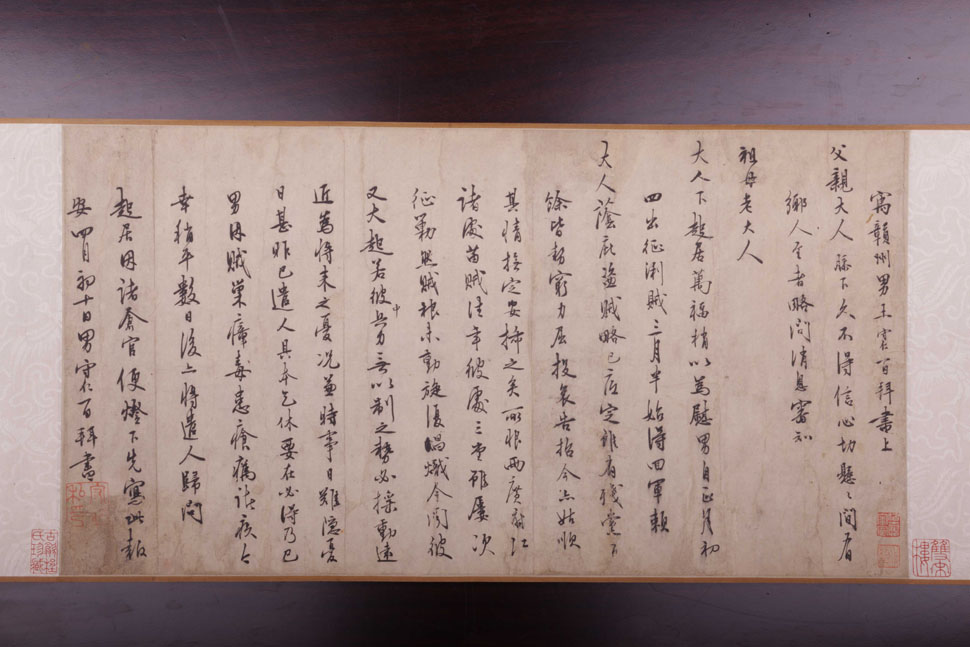 寓贛州男王守仁百拜書上
父親大人膝下久不得信心切懸々間有
鄉人至者略問消息審知
祖母老大人
大人下起居萬福稍以為慰男自正月初
四出征浰賊三月半始得回軍賴
大人蔭庇盜賊略已底定雖有殘黨
餘皆勢窮力屈投哀告招今亦姑順
其情撫定安插之矣所恨兩廣府江
諸處苗賊往年彼處三堂雖屢次
征勦然賊根未動旋復昌熾今聞彼
又大起若彼中兵力無以制之勢必搖動遠
近為將來之憂況兼時事日難隱憂
日甚昨已遣人具本乞休要在必得乃已
男因賊巢瘴毒患瘡癘諸疾今
幸稍平數日後亦將遣人歸問
起居因諸倉官便燈下先寫此報
安四月初十日男守仁百拜書